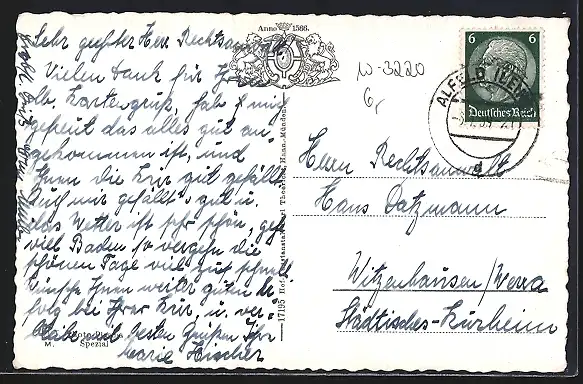 Sehr geehrter Herr Rechtsanwalt
Vielen Dank für Ihren
lb. Kartengruß, hab mich
gefreut das alles gut an-
gekommen ist, und
Ihnen die Kur gut gefällt.
Auch mir gefällt's gut u.
das Wetter ist sehr schön, geh
viel Baden so vergehn die
schönen Tage viel zu schnell
wünsche Ihnen weiter guten Er-
folg bei Ihrer Kur, u. ver-
bleibe mit besten Grüßen Ihr
Marie Fischer
M. Spezial
Anno 1566.
17195 Hof-Kunstanstalt Theodor, Hann. Münden
W-3220
6,-
6 6
Deutsches Reich
ALFELD (LEINE)
Herrn Rechtsanwalt
Hans Datzmann
Witzenhausen/Werra
Städtisches-Kurheim